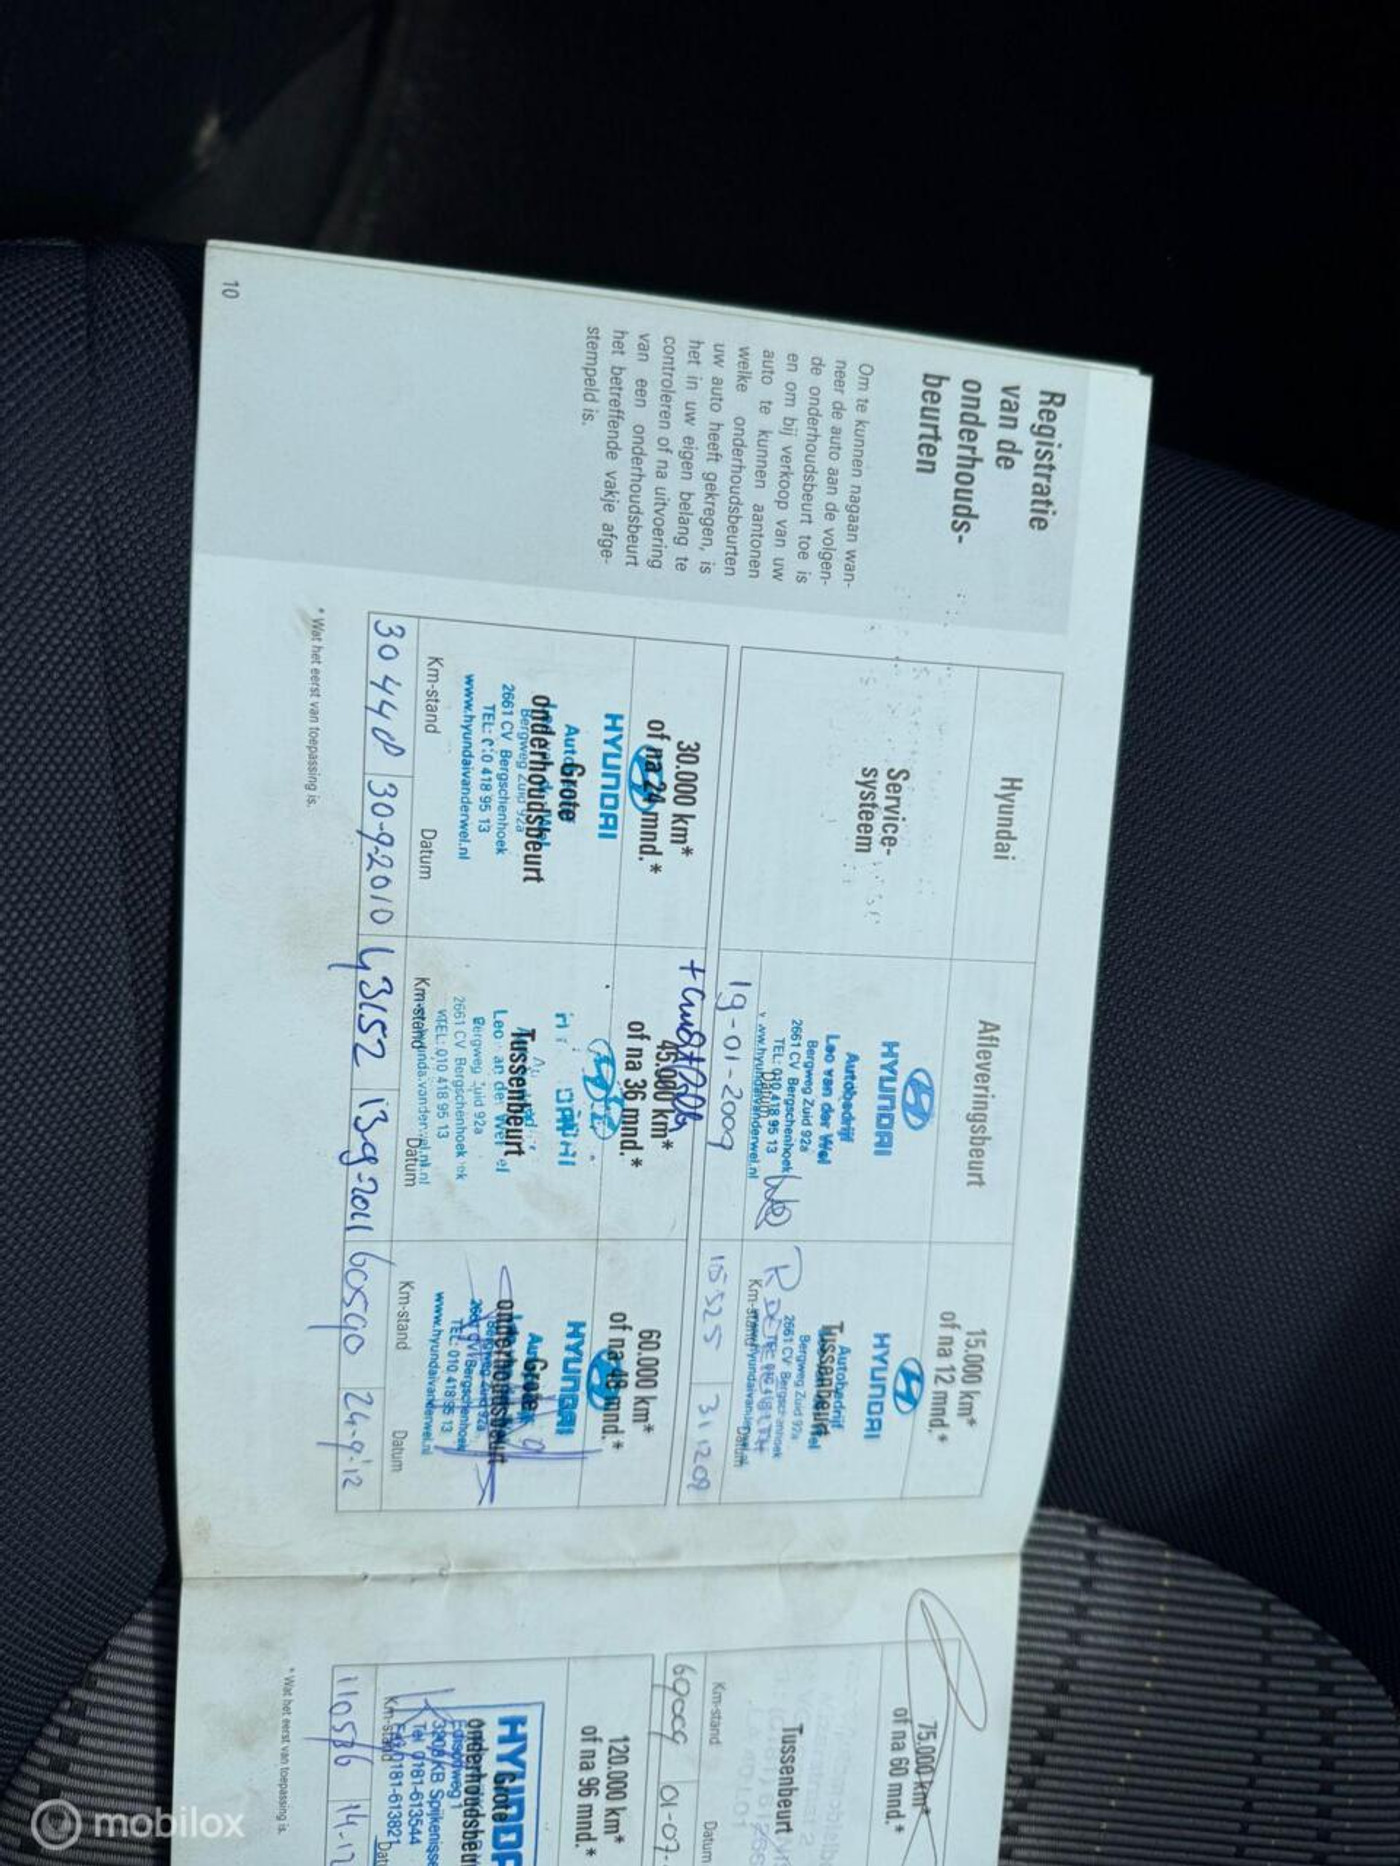 Registratie
van de
onderhouds-
beurten
Om te kunnen nagaan wan-
neer de auto aan de volgen-
de onderhoudsbeurt toe is
en om bij verkoop van uw
auto te kunnen aantonen
welke onderhoudsbeurten
uw auto heeft gekregen, is
het in uw eigen belang te
controleren of na uitvoering
van een onderhoudsbeurt
het betreffende vakje afge-
stempeld is.
10
Hyundai
Service-
systeem
Afleveringsbeurt
HYUNDAI
Autobedrijf
Leo van der Wel
Bergweg Zuid 92a
2661 CV Bergschenhoek
TEL: 010 418 95 13
www.hyundaivanderwel.nl
Datum
19-01-2009
15.000 km*
of na 12 mnd.*
HYUNDAI
Tussenbeurt
Autobedrijf
Bergweg Zuid 92a
2661 CV Bergschenhoek
Km-stand
Datum
15525
31209
30.000 km*
of na 24 mnd.*
HYUNDAI
Grote
onderhoudsbeurt
Bergweg Zuid 92a
2661 CV Bergschenhoek
TEL: 010 418 95 13
www.hyundaivanderwel.nl
Km-stand
Datum
30448
30-9-2010
45.000 km*
of na 36 mnd.*
Tussenbeurt
Bergweg Zuid 92a
2661 CV Bergschenhoek
TEL: 010 418 95 13
Km-stand
Datum
43152
13-9-2011
60.000 km*
of na 48 mnd.*
HYUNDAI
Grote
onderhoudsbeurt
Bergweg Zuid 92a
2661 CV Bergschenhoek
TEL: 010 418 95 13
www.hyundaivanderwel.nl
Km-stand
Datum
60590
24-9-'12
* Wat het eerst van toepassing is.
75.000 km*
of na 60 mnd.*
Tussenbeurt
Km-stand
Datum
69009
01-07-
120.000 km*
of na 96 mnd.*
HYUNDA
Grote
onderhoudsbeu
Edisonweg 1
3208 KB Spijkenisse
Tel. 0181-613544
Fax 0181-613821
Km-stand
Dat
110536
14-12
* Wat het eerst van toepassing is.
mobilox